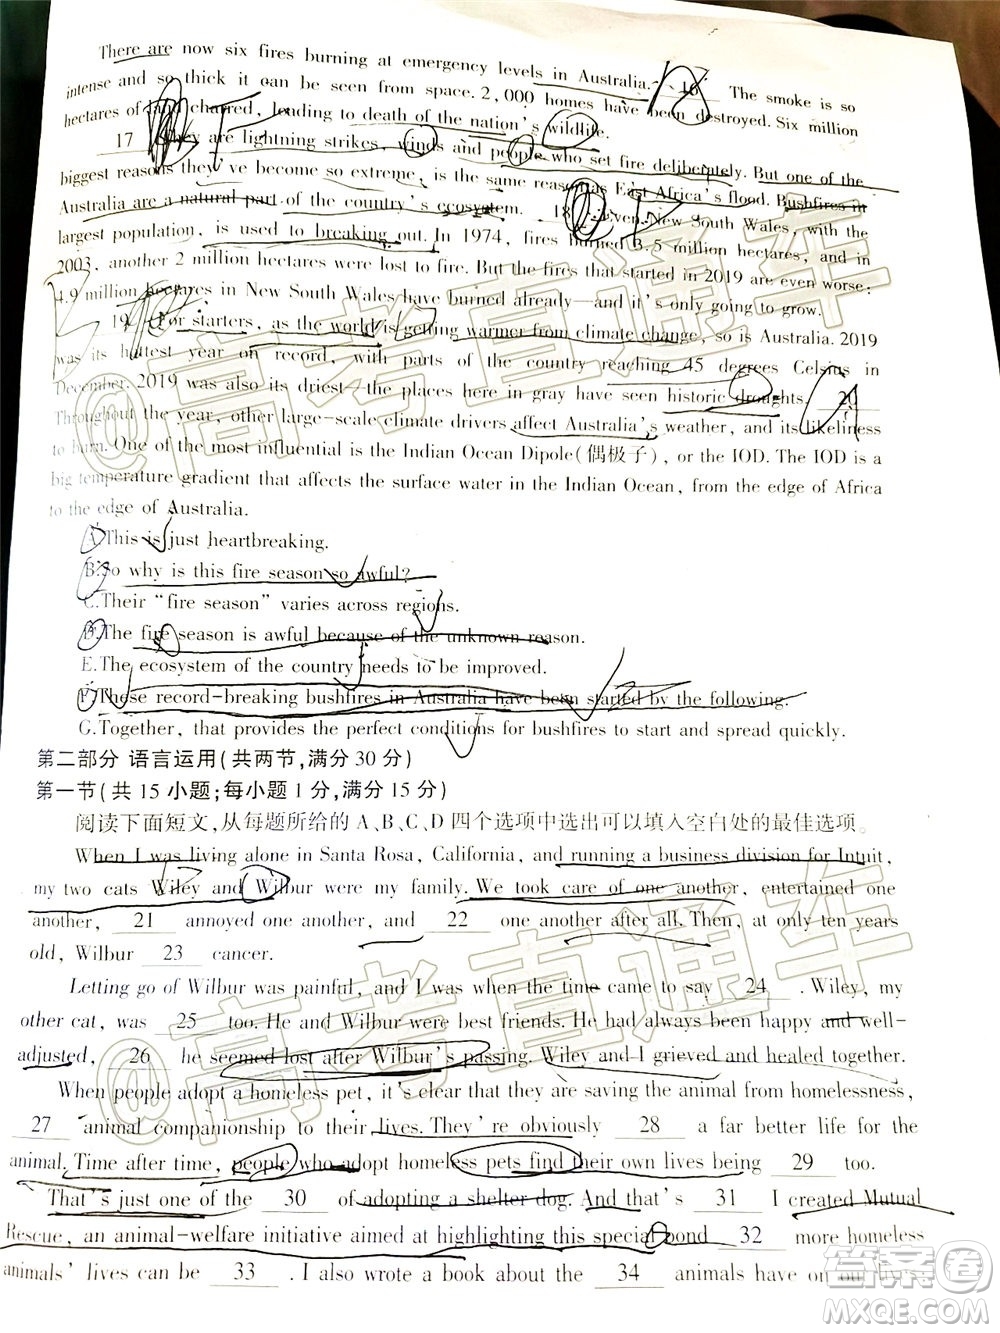 There are now six fires burning at emergency levels in Australia. 16 The smoke is so
intense and so thick it can be seen from space. 2,000 homes have been destroyed. Six million
hectares of land charred, leading to death of the nation's wildlife.
17 They are lightning strikes, winds and people who set fire deliberately. But one of the
biggest reasons they've become so extreme, is the same reason as East Africa's flood. Bushfires in
Australia are a natural part of the country's ecosystem. 18 Even New South Wales, the
largest population, is used to breaking out. In 1974, fires burned 3.5 million hectares, and in
2003, another 2 million hectares were lost to fire. But the fires that started in 2019 are even worse:
4.9 million hectares in New South Wales have burned already—and it's only going to grow.
19 For starters, as the world is getting warmer from climate change, so is Australia. 2019
was its hottest year on record, with parts of the country reaching 45 degrees Celsius in
December. 2019 was also its driest—the places here in gray have seen historic droughts. 20
Throughout the year, other large-scale climate drivers affect Australia's weather, and its likeliness
to burn. One of the most influential is the Indian Ocean Dipole(偶极子), or the IOD. The IOD is a
big temperature gradient that affects the surface water in the Indian Ocean, from the edge of Africa
to the edge of Australia.
A.This is just heartbreaking.
B.So why is this fire season so awful?
C.Their "fire season" varies across regions.
D.The fire season is awful because of the unknown reason.
E.The ecosystem of the country needs to be improved.
F.These record-breaking bushfires in Australia have been started by the following.
G.Together, that provides the perfect conditions for bushfires to start and spread quickly.
第二部分 语言运用(共两节,满分30分)
第一节(共15小题;每小题1分,满分15分)
阅读下面短文,从每题所给的A、B、C、D四个选项中选出可以填入空白处的最佳选项。
When I was living alone in Santa Rosa, California, and running a business division for Intuit,
my two cats Wiley and Wilbur were my family. We took care of one another, entertained one
another, 21 annoyed one another, and 22 one another after all. Then, at only ten years
old, Wilbur 23 cancer.
Letting go of Wilbur was painful, and I was lucky when the time came to say 24 . Wiley, my
other cat, was 25 too. He and Wilbur were best friends. He had always been happy and well-
adjusted, 26 he seemed lost after Wilbur's passing. Wiley and I grieved and healed together.
When people adopt a homeless pet, it's clear that they are saving the animal from homelessness,
27 animal companionship to their lives. They're obviously 28 a far better life for the
animal. Time after time, people who adopt homeless pets find their own lives being 29 too.
That's just one of the 30 of adopting a shelter dog. And that's 31 I created Mutual
Rescue, an animal-welfare initiative aimed at highlighting this special bond 32 more homeless
animals' lives can be 33 . I also wrote a book about the 34 animals have on our
@高考直通车
@高考直通车
答案圈
MXQE.COM